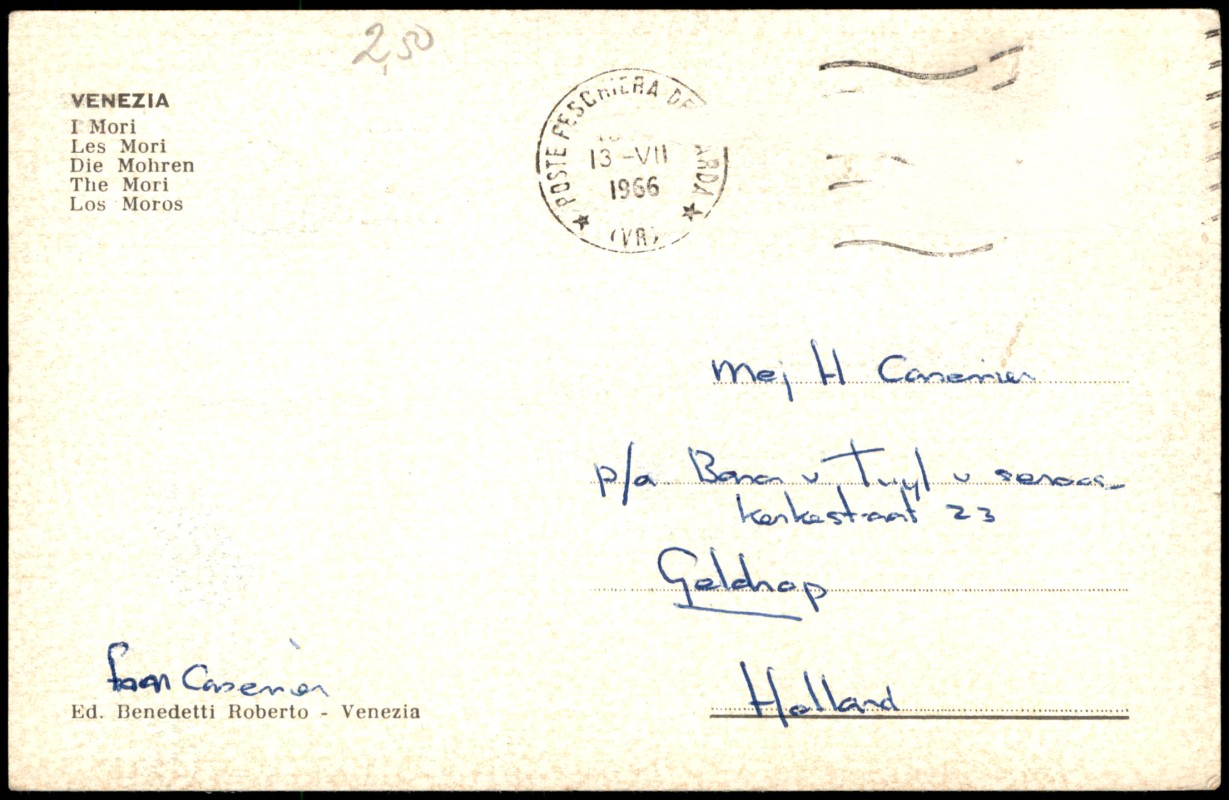 2,50
VENEZIA
I Mori
Les Mori
Die Mohren
The Mori
Los Moros
POSTE PESCHIERA DE ARDA
13-VII
1966
(VR)
Mej H
p/a v Tuyl v seroos-
kerkestraat 23
Geldrop
Holland
Fam
Ed. Benedetti Roberto - Venezia